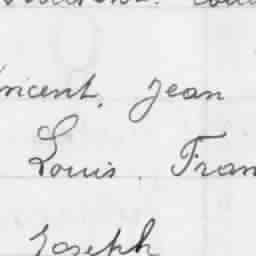 Vincent, Jean
Louis. Fran
Joseph